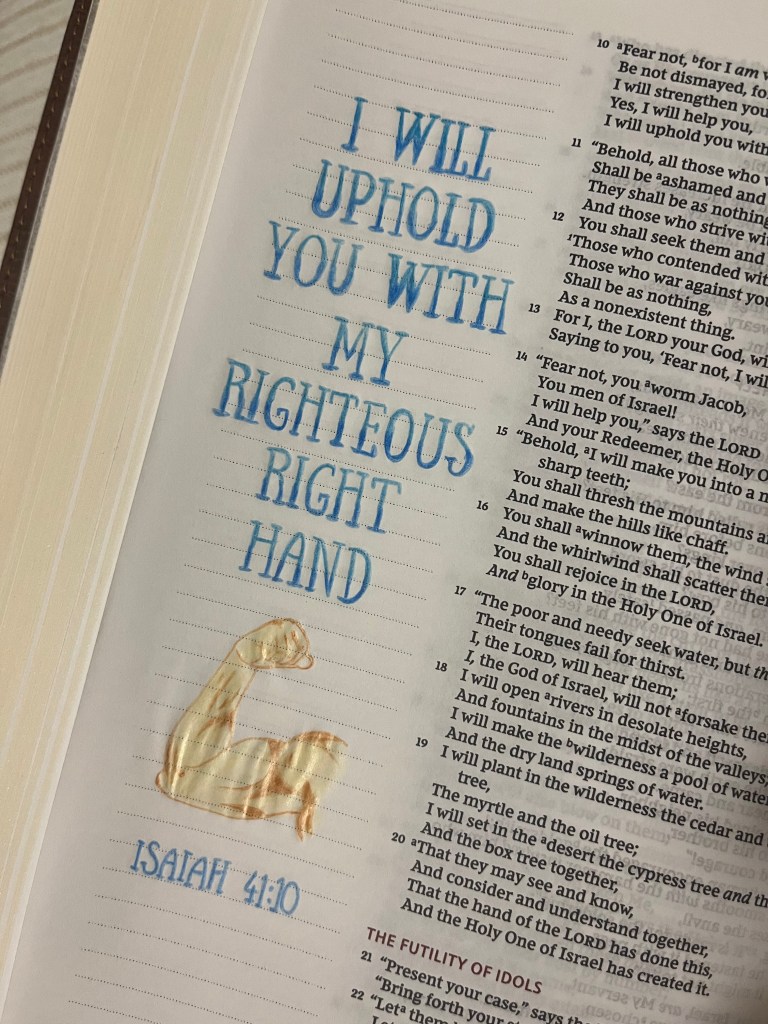 I WILL
UPHOLD
YOU WITH
MY
RIGHTEOUS
RIGHT
HAND
ISAIAH 41:10
10 aFear not, bfor I am
Be not dismayed,
I will strengthen you
Yes, I will help you,
I will uphold you with
11 “Behold, all those who
Shall be aashamed and
They shall be as nothing
And those who strive
12 You shall seek them and
1Those who contended
Those who war against
Shall be as nothing,
As a nonexistent thing.
13 For I, the LORD your God,
Saying to you, ‘Fear not, I
14 “Fear not, you aworm Jacob,
You men of Israel!
I will help you,” says the LORD
And your Redeemer, the Holy
15 “Behold, aI will make you into a
sharp teeth;
You shall thresh the mountains
And make the hills like chaff.
16 You shall awinnow them, the wind
And the whirlwind shall scatter
You shall rejoice in the LORD,
And bglory in the Holy One of Israel.
17 “The poor and needy seek water, but
Their tongues fail for thirst.
I, the LORD, will hear them;
I, the God of Israel, will not aforsake
18 I will open arivers in desolate heights,
And fountains in the midst of the valleys;
I will make the bwilderness a pool of
And the dry land springs of water.
19 I will plant in the wilderness the cedar and
tree,
The myrtle and the oil tree;
I will set in the adesert the cypress tree and
And the box tree together,
20 aThat they may see and know,
And consider and understand together,
That the hand of the LORD has done this,
And the Holy One of Israel has created it.
THE FUTILITY OF IDOLS
21 “Present your case,” says
“Bring forth your
22 “Leta them